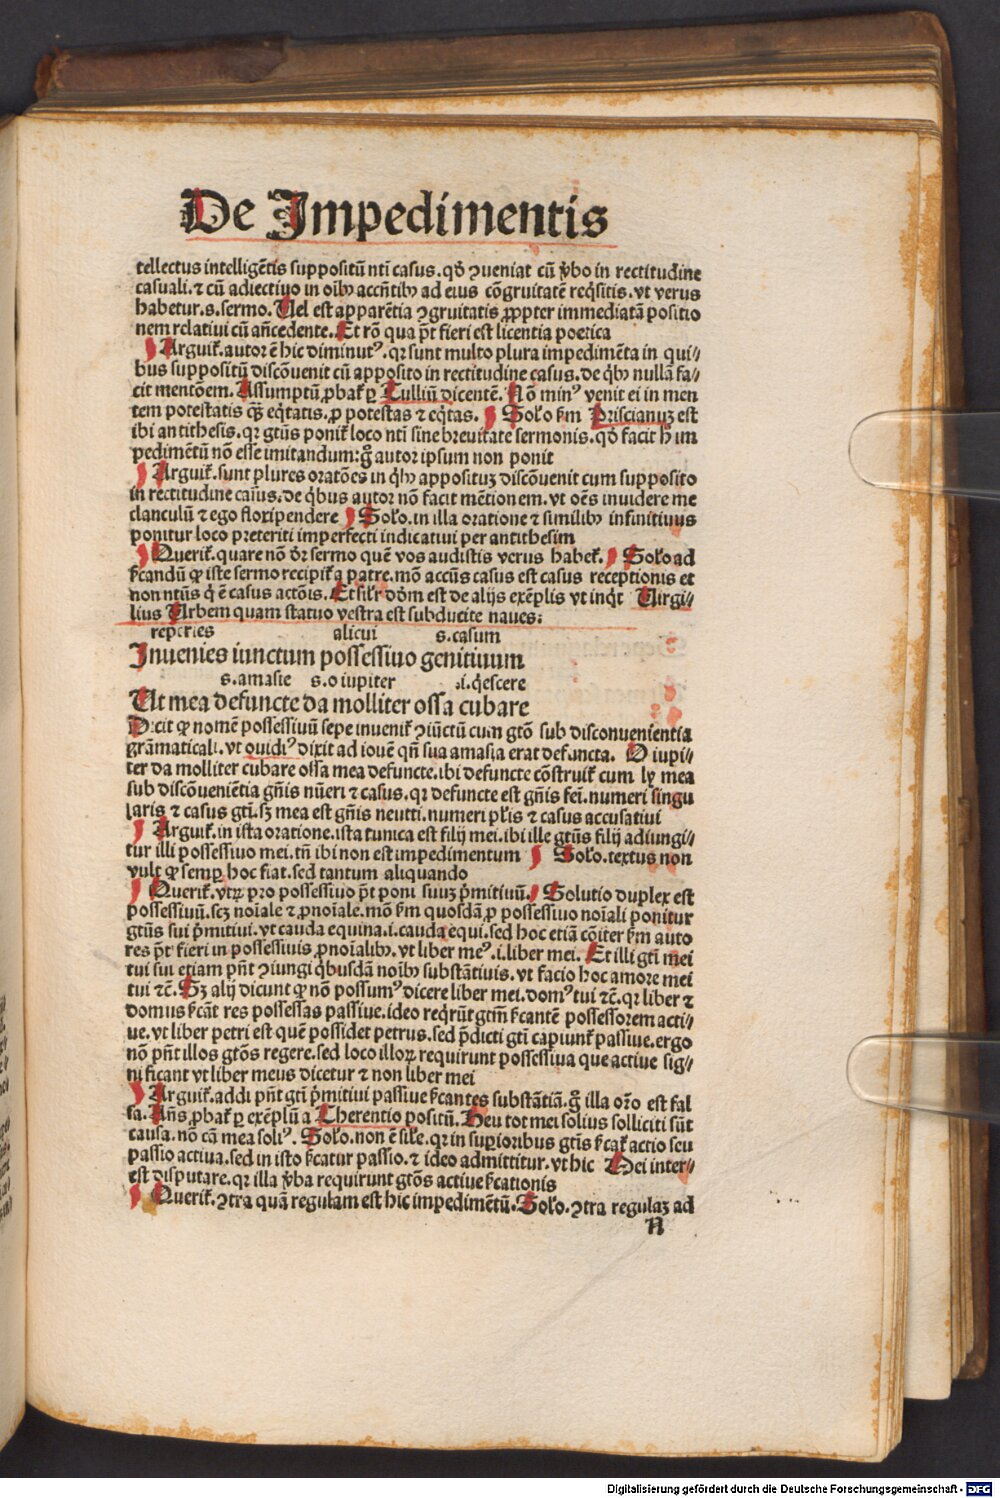 De Impedimentis
tellectus intelligẽtis suppositũ nti casus. qđ ꝯueniat cũ ṽbo in rectitudine
casuali. ⁊ cũ adiectiuo in oĩbꝫ accñtibꝫ ad eius cõgruitatẽ reqͥsitis. vt verus
habetur. s. sermo. Uel est apparẽtia ꝯgruitatis ꝓpter immediatã positio
nem relatiui cũ añcedente. Et rõ qua p̃t fieri est licentia poetica
Arguiť. autor ẽ hic diminutꝰ. qꝛ sunt multo plura impedimẽta in qui⸗
bus suppositũ discõuenit cũ apposito in rectitudine casus. de qͥbꝫ nullã fa⸗
cit mentõem. Assumptũ ꝓbať ꝑ Tulliũ dicentẽ. Nõ minꝰ venit ei in men
tem potestatis qꝫ̃ eq̃tatis. ꝓ potestas ⁊ eq̃tas. Solo ẜm Priscianuꝫ est
ibi antithesis. qꝛ gtũs poniť loco nti sine breuitate sermonis. qđ facit ħ im
pedimẽtũ nõ esse imitandum: g̃ autor ipsum non ponit
Arguiť. sunt plures oratões in qͥbꝫ apposituꝫ discõuenit cum supposito
in rectitudine casus. de qͥbus autor nõ facit mẽtionem. vt oẽs inuidere me
clanculũ ⁊ ego floripendere Solo. in illa oratione ⁊ similibꝫ infinitiuus
ponitur loco preteriti imperfecti indicatiui per antithesim
Queriť. quare nõ dr̃ sermo quẽ vos audistis verus habeť. Solo ad
ẜcandũ ꝙ iste sermo recipiť a patre. mõ accũs casus est casus receptionis et
non ntũs qͥ ẽ casus actõis. Et silr̃ dd̃m est de alijs exẽplis vt inqͥt Uirgi⸗
lius Urbem quam statuo vestra est subducite naues:
reperies alicui s. casum
Inuenies iunctum possessiuo genitiuum
s. amasie s. o iupiter .i. qͥescere
Ut mea defuncte da molliter ossa cubare
Dicit ꝙ nomẽ possessiuũ sepe inueniť ꝯiũctũ cum gtõ sub disconuenientia
grãmaticali. vt ouidiꝰ dixit ad iouẽ qñ sua amasia erat defuncta. O iupi⸗
ter da molliter cubare ossa mea defuncte. ibi defuncte cõstruiť cum ly mea
sub discõueniẽtia gñis nũeri ⁊ casus. qꝛ defuncte est gñis fei. numeri singu
laris ⁊ casus gti. sꝫ mea est gñis neutri. numeri plꝛis ⁊ casus accusatiui
Arguiť. in ista oratione. ista tunica est filij mei. ibi ille gtũs filij adiungi⸗
tur illi possessiuo mei. tñ ibi non est impedimentum Solo. textus non
vult ꝙ semꝑ hoc fiat. sed tantum aliquando
Queriť. vtꝝ pro possessiuo p̃t poni suuꝫ p̃mitiuũ. Solutio duplex est
possessiuũ. scꝫ noĩale ⁊ ꝓnoĩale. mõ ẜm quosdã ꝓ possessiuo noĩali ponitur
gtũs sui p̃mitiui. vt cauda equina. i. cauda equi. sed hoc etiã cõiter ẜm auto
res p̃t fieri in possessiuis ꝓnoĩalibꝫ. vt liber meꝰ. i. liber mei. Et illi gti mei
tui sui etiam pñt ꝯiungi qͥbusdã noĩbꝫ substãtiuis. vt facio hoc amore mei
tui ⁊c̃. Sꝫ alij dicunt ꝙ nõ possumꝰ dicere liber mei. domꝰ tui ⁊c̃. qꝛ liber ⁊
domus ẜcãt res possessas passiue. ideo reqͥrũt gtm̃ ẜcantẽ possessorem acti⸗
ue. vt liber petri est quẽ possidet petrus. sed p̃dicti gti capiunť passiue. ergo
nõ pñt illos gtõs regere. sed loco illoꝝ requirunt possessiua que actiue sig⸗
nificant vt liber meus dicetur ⁊ non liber mei
Arguiť. addi pñt gti p̃mitiui passiue ẜcantes substãtiã. g̃ illa or̃o est fal
sa. Añs ꝓbať ꝑ exẽplũ a Therentio positũ. Heu tot mei solius solliciti sũt
causa. nõ cã mea soliꝰ. Solo. non ẽ sile. qꝛ in suꝑioribus gtũs ẜcať actio seu
passio actiua. sed in isto ẜcatur passio. ⁊ ideo admittitur. vt hic Mei inter⸗
est disputare. qꝛ illa ṽba requirunt gtõs actiue ẜcationis
Queriť. ꝯtra quã regulam est hic impedimẽtũ. Solo. ꝯtra regulaꝫ ad
N
Digitalisierung gefördert durch die Deutsche Forschungsgemeinschaft - DFG